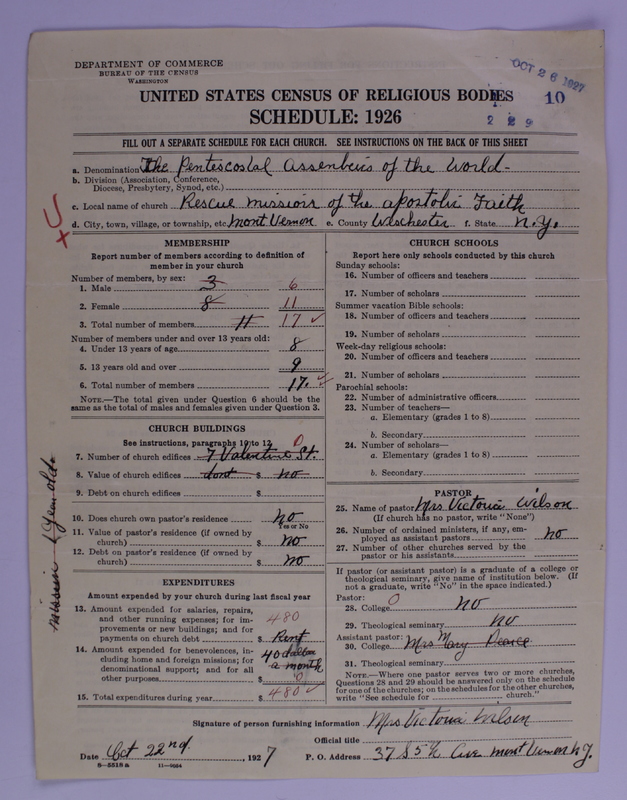 DEPARTMENT OF COMMERCE
BUREAU OF THE CENSUS
WASHINGTON
OCT 26 1927
UNITED STATES CENSUS OF RELIGIOUS BODIES
10
SCHEDULE: 1926
2 2 9
FILL OUT A SEPARATE SCHEDULE FOR EACH CHURCH. SEE INSTRUCTIONS ON THE BACK OF THIS SHEET
a. Denomination The Pentescostal Assenbeirs of the World-
b. Division (Association, Conference,
Diocese, Presbytery, Synod, etc.)
c. Local name of church Rescue mission of the apostolic Faith
d. City, town, village, or township, etc. Mont Vernon e. County Weschester f. State N.Y.
MEMBERSHIP
Report number of members according to definition of
member in your church
Number of members, by sex:
1. Male 3 6
2. Female 8 11
3. Total number of members 11 17
Number of members under and over 13 years old:
4. Under 13 years of age 8
5. 13 years old and over 9
6. Total number of members 17.
NOTE.—The total given under Question 6 should be the
same as the total of males and females given under Question 3.
CHURCH BUILDINGS
See instructions, paragraphs 10 to 12
7. Number of church edifices 7 Valentine St. 0
8. Value of church edifices dont $ no
9. Debt on church edifices $
10. Does church own pastor's residence no
Yes or No
11. Value of pastor's residence (if owned by
church) $ No
12. Debt on pastor's residence (if owned by
church) $ No
mission 1 year old
EXPENDITURES
Amount expended by your church during last fiscal year
13. Amount expended for salaries, repairs,
and other running expenses; for im-
provements or new buildings; and for
payments on church debt $ Rent
480
14. Amount expended for benevolences, in-
cluding home and foreign missions; for
denominational support; and for all
other purposes $
40 dollars
a month
0
15. Total expenditures during year $ 480
CHURCH SCHOOLS
Report here only schools conducted by this church
Sunday schools:
16. Number of officers and teachers
17. Number of scholars
Summer vacation Bible schools:
18. Number of officers and teachers
19. Number of scholars
Week-day religious schools:
20. Number of officers and teachers
21. Number of scholars
Parochial schools:
22. Number of administrative officers
23. Number of teachers—
a. Elementary (grades 1 to 8)
b. Secondary
24. Number of scholars—
a. Elementary (grades 1 to 8)
b. Secondary
PASTOR
25. Name of pastor Mrs Victoria Wilson
(If church has no pastor, write "None")
26. Number of ordained ministers, if any, em-
ployed as assistant pastors no
27. Number of other churches served by the
pastor or his assistants
If pastor (or assistant pastor) is a graduate of a college or
theological seminary, give name of institution below. (If
not a graduate, write "No" in the space indicated.)
Pastor: 0
28. College no
29. Theological seminary no
Assistant pastor:
30. College Mrs Mary Pearce
31. Theological seminary
NOTE.—Where one pastor serves two or more churches,
Questions 28 and 29 should be answered only on the schedule
for one of the churches; on the schedules for the other churches,
write "See schedule for church."
Signature of person furnishing information Mrs Victoria Wilson
Official title
Date Oct 22nd, 1927 P. O. Address 37 S 5th Ave mont Vernon N.Y.
8—5518 a 11—9664